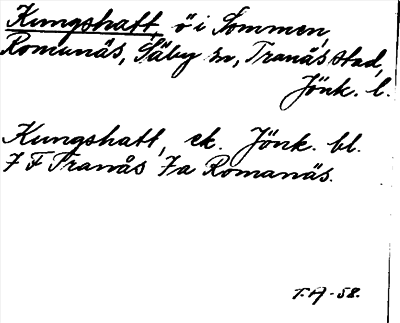 Kungshatt, ö i Sommen,
Romanäs, Säby sn, Tranås stad,
Jönk. l.
Kungshatt, ek. Jönk. bl.
7 F Tranås 7a Romanäs.
T.A-58.